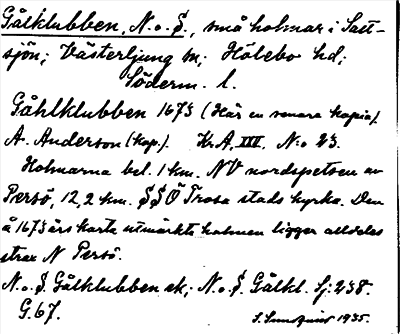 Gålklubben, N. o. S., små holmar i Salt-
sjön; Västerljung sn; Hölebo hd;
Söderm. l.
Gåhlklubben 1673 (Här en senare kopia).
A. Anderson (kop.). Kr.A. XIII. N:o 23.
Holmarna bel. 1 km. NV nordspetsen av
Persö, 12,2 km. SSÖ Trosa stads kyrka. Den
å 1673 års karta utmärkta holmen ligger alldeles
strax N Persö.
N. o. S. Gålklubben ek; N. o. S. Gålkl. Sj: 238.
G. 67.
S. Sundquist 1935.